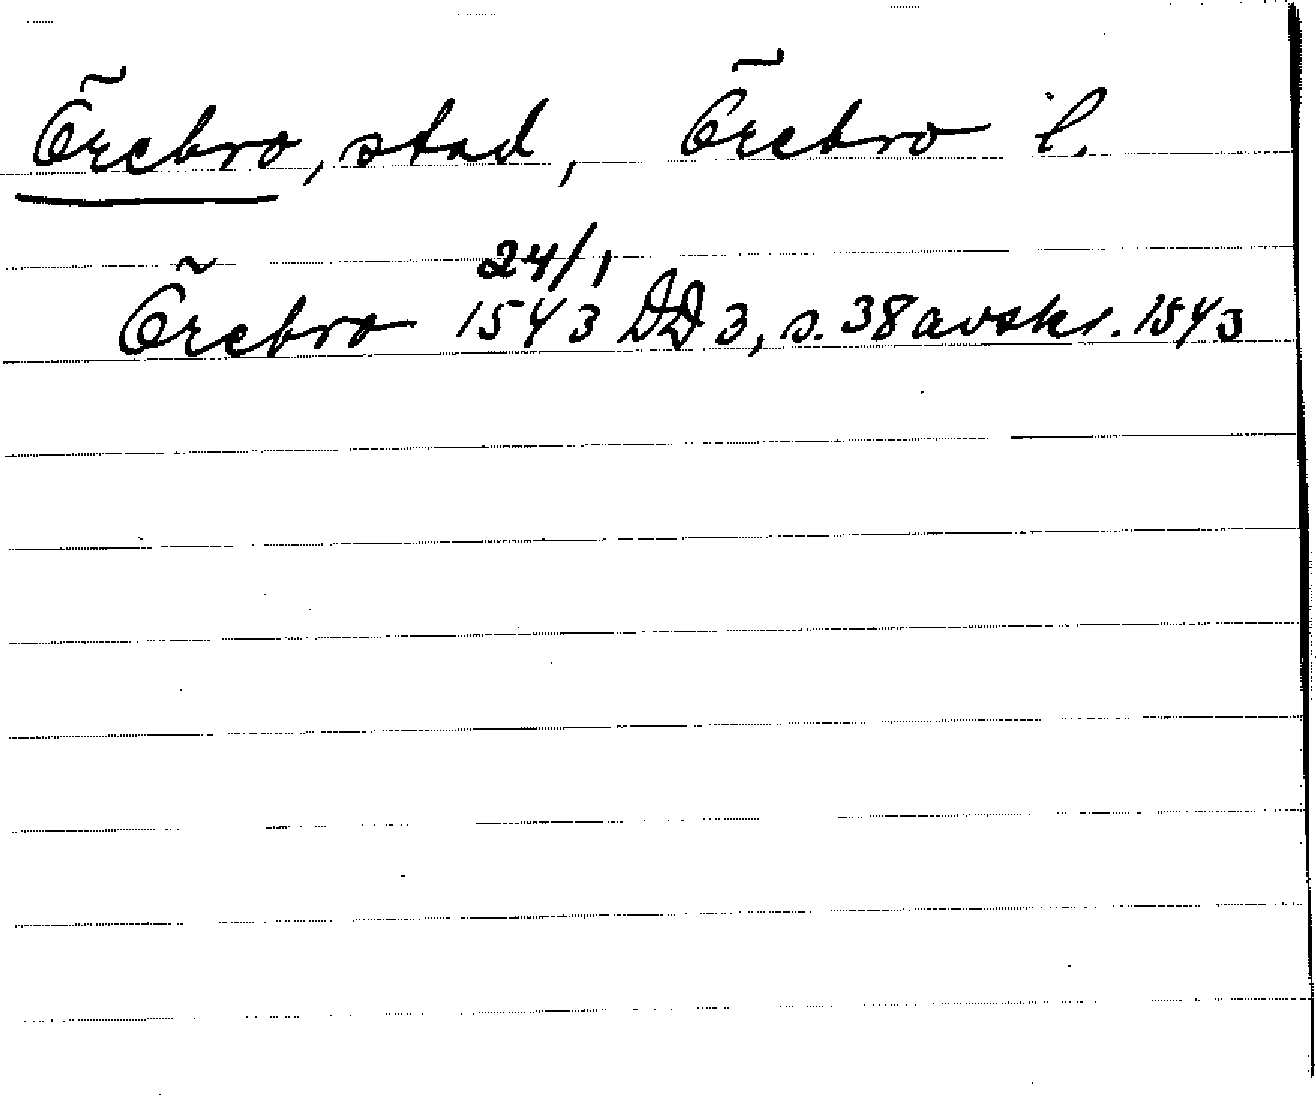 Örebro, stad, Örebro l.
24/1
Örebro 1543 DD 3, s. 38 avskr. 1543